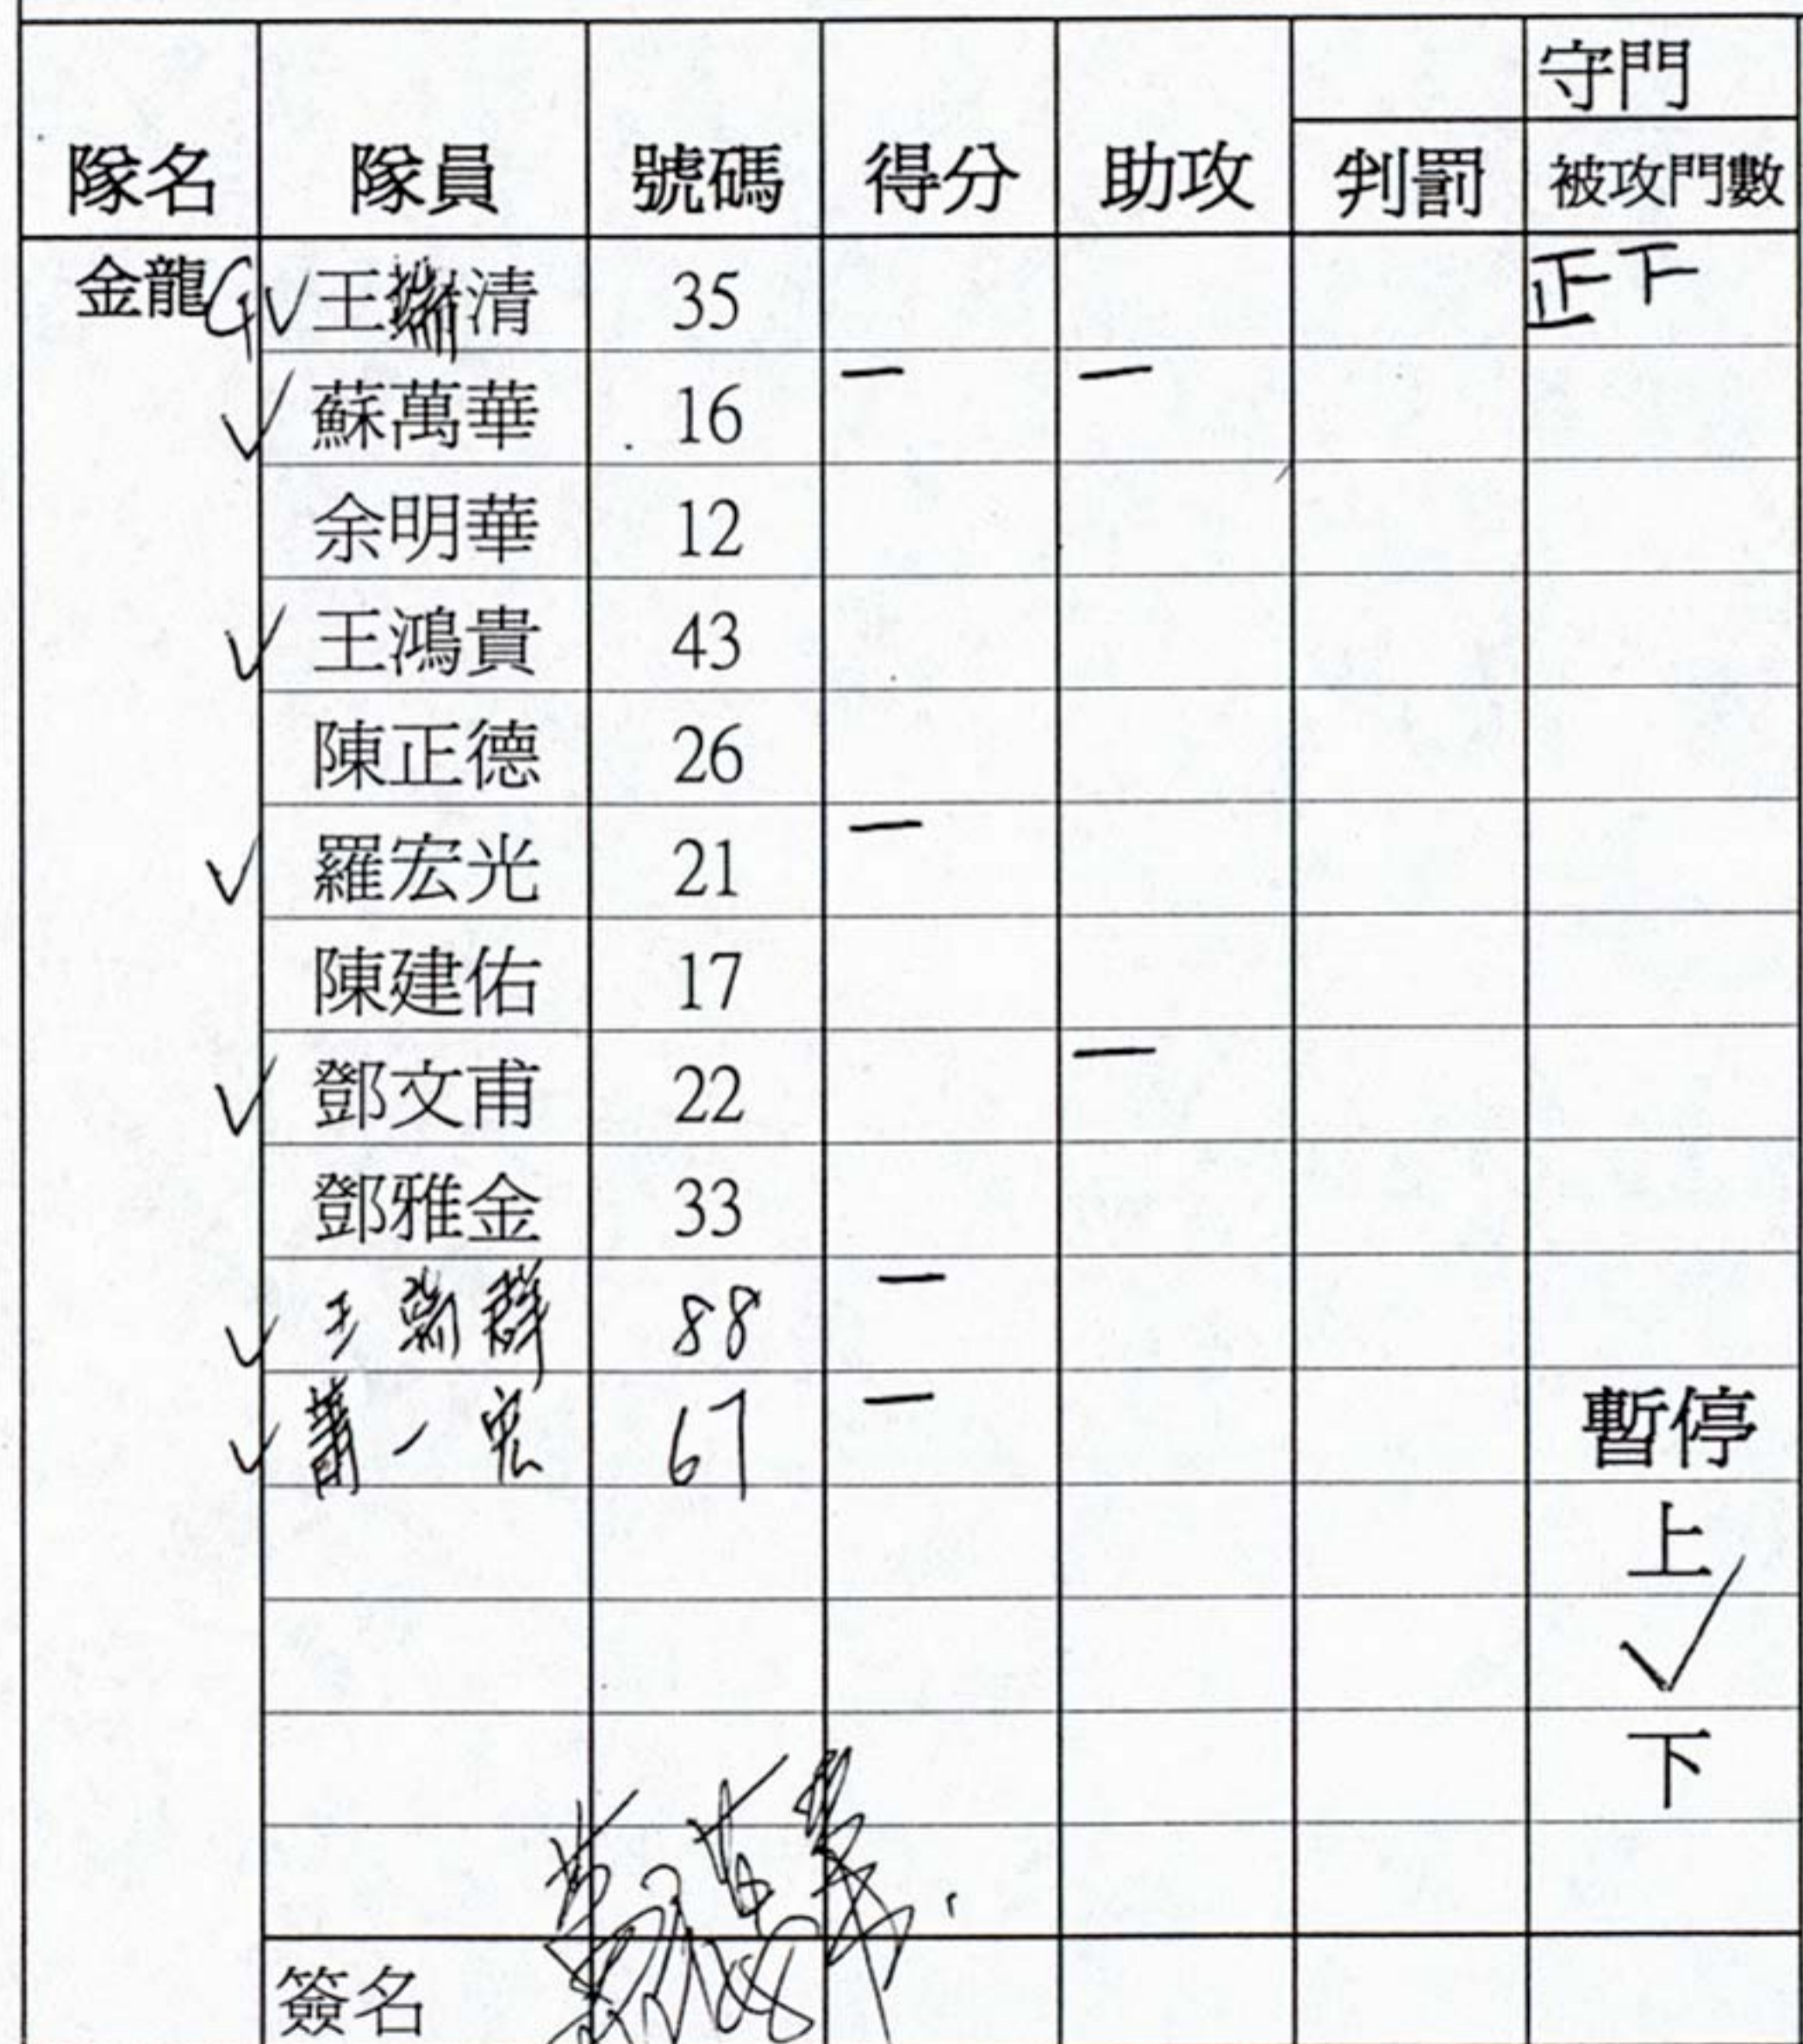 守門
隊名 隊員 號碼 得分 助攻 判罰 被攻門數
金龍 G √ 王瑞清 35 正下
√ 蘇萬華 16 一 一
余明華 12
√ 王鴻貴 43
陳正德 26
√ 羅宏光 21 一
陳建佑 17
√ 鄧文甫 22 一
鄧雅金 33
√ 王瑞群 88 一
√ 蕭一宏 67 一
暫停
上
√
下
簽名